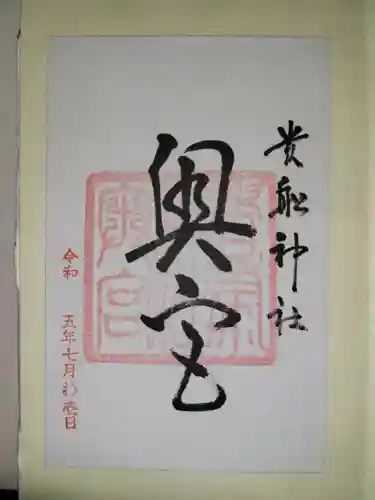 貴船神社
奥宮
令和 五年七月 壱日